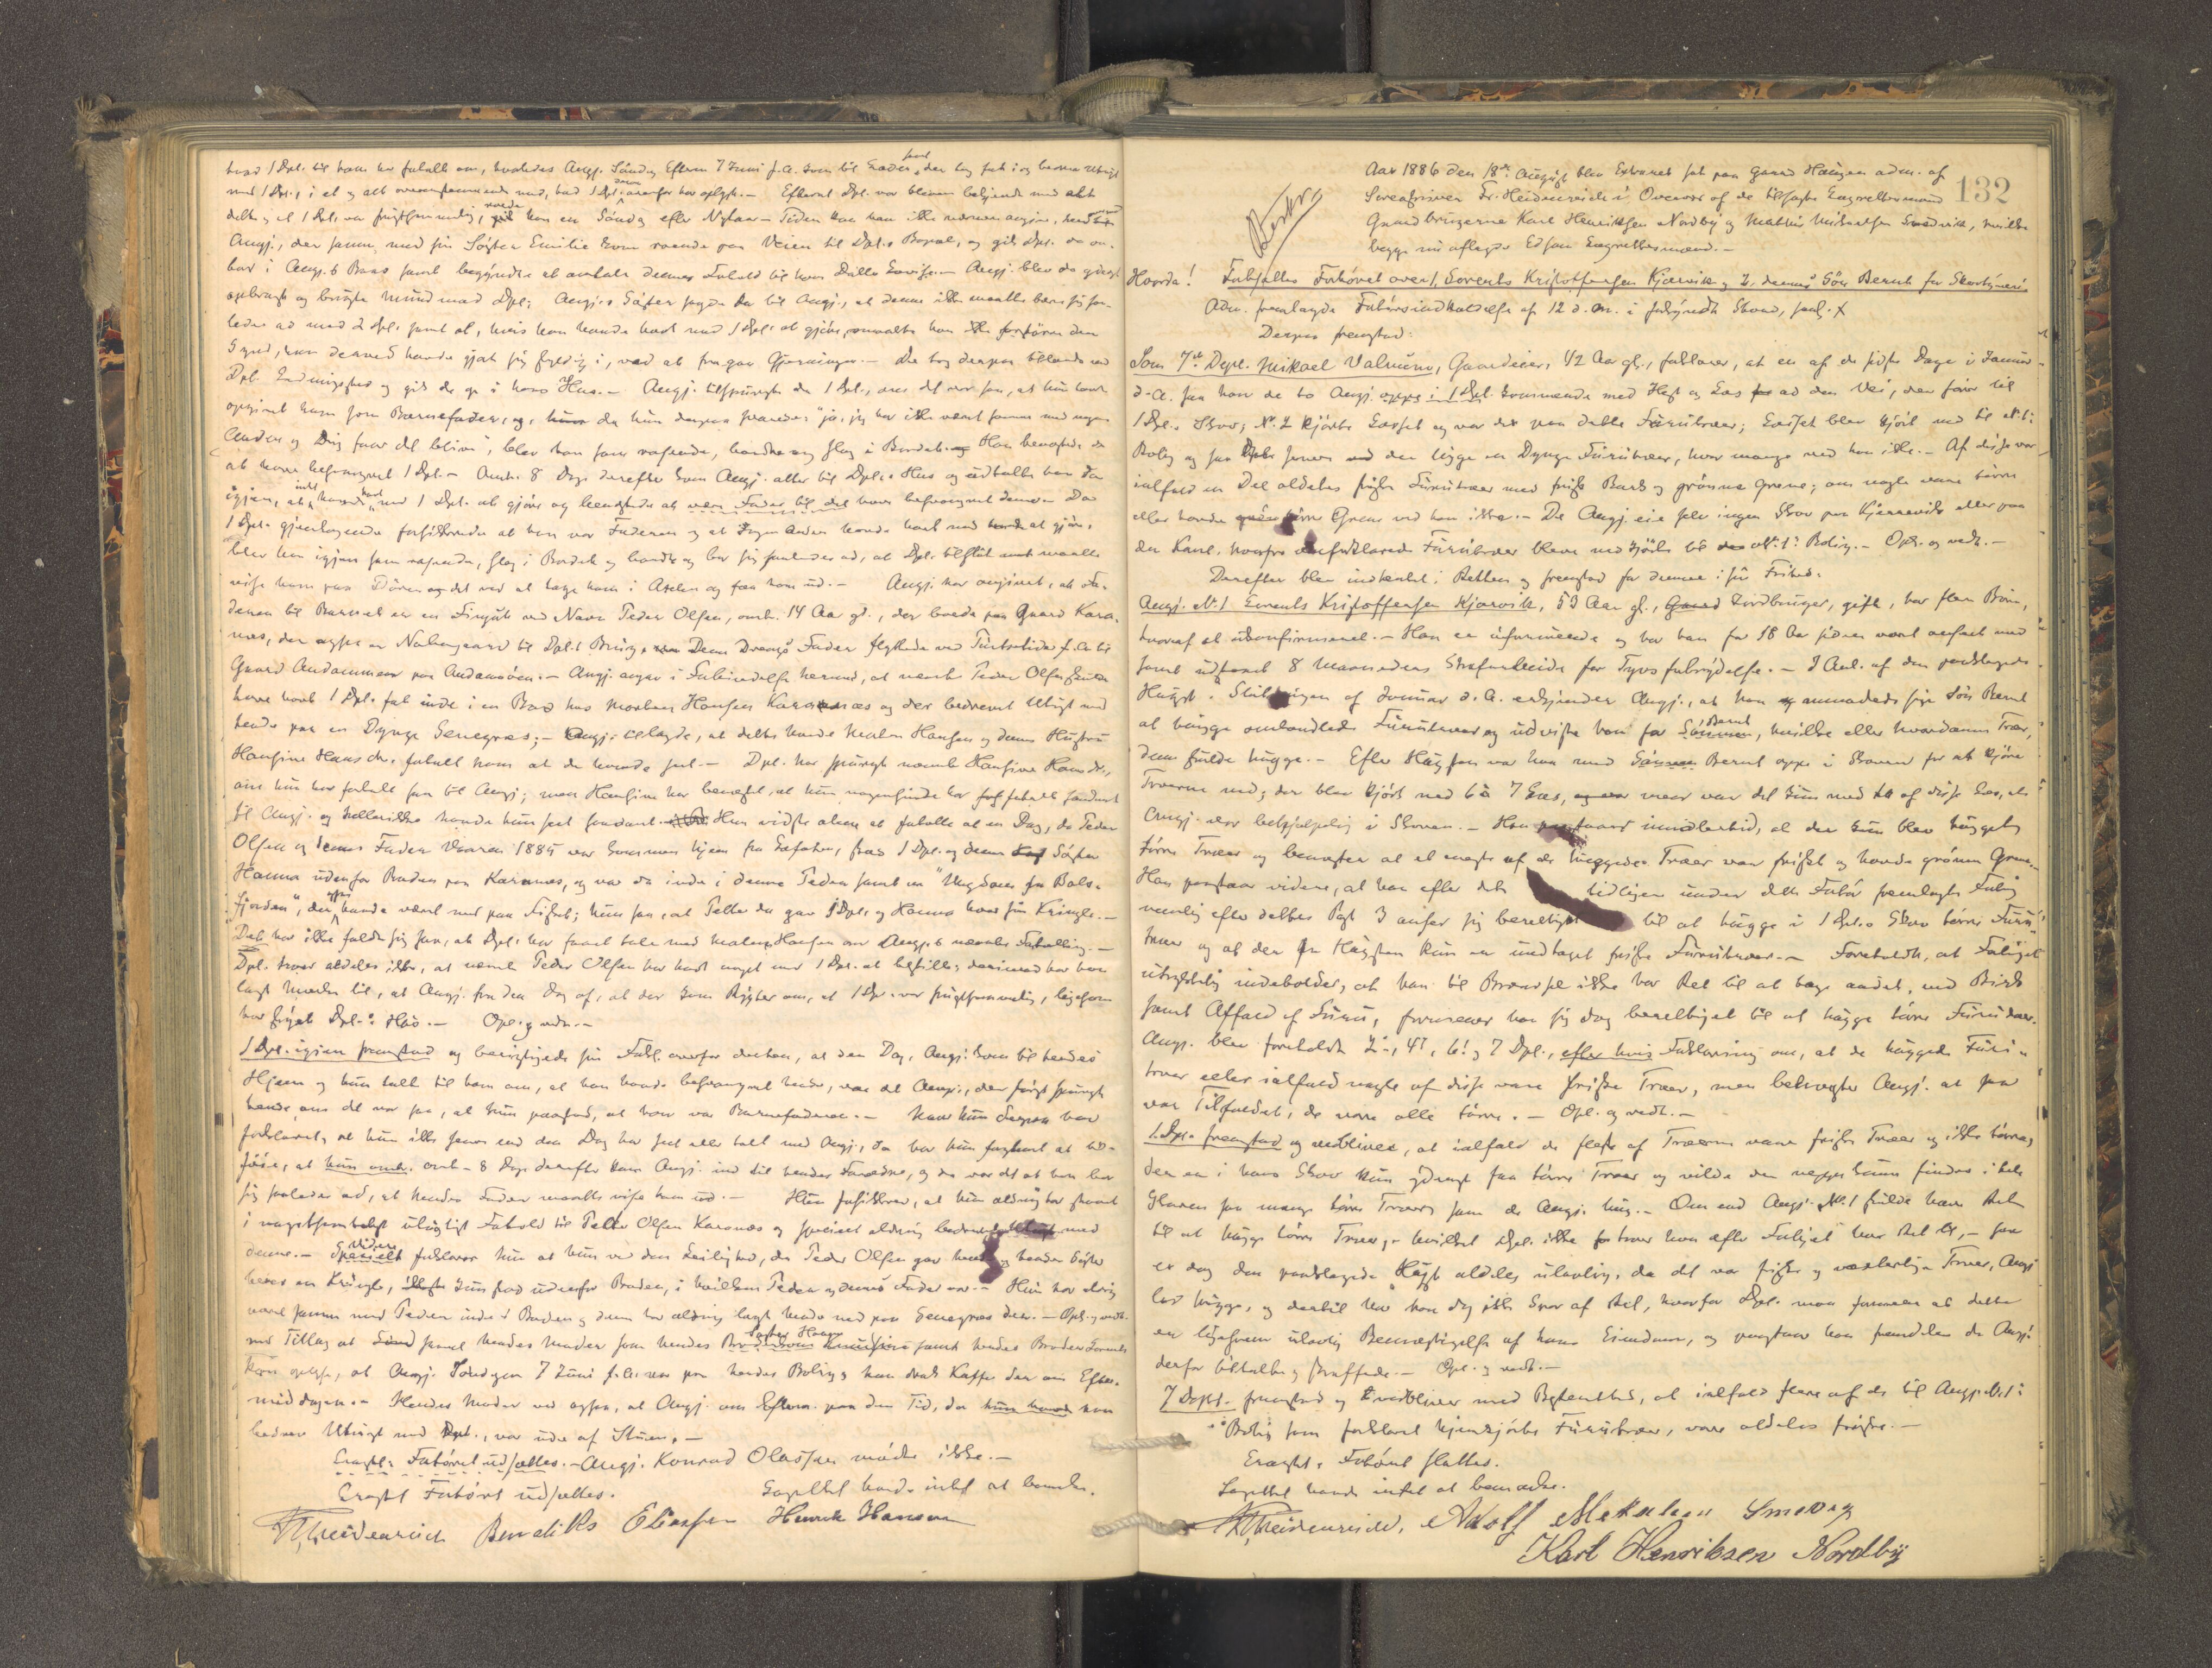 hvad 1 Dpl. til ham har fortalt om, hvorledes Angj. Søndag Efterm 7 Juni f.A. kom til Gaden, som der tog fat i og bedrev Utugt
med 1 Dpl., i et og alt overensstemmende med, hvad 1 Dpl. som ovenfor har oplyst. — Efterat Dpl. var bleven bekjendt med alt
dette og at 1 Dpl. var frugtsommelig, roede han en Søndag efter Nytaar — Tiden kan han ikke nærmere angive,
Angj., der sammen med sin Søster Emilie kom roende paa Veien til Dpl.s Bopæl, og gik Dpl. da om-
bord i Angj.s Baad samt begyndte at omtale dennes Forhold til hans Datter Lovise. — Angj. blev da ganske
opbragt og brugte Mund mod Dpl; Angj.s Søster sagde da til Angj., at denne ikke maatte bære sig saa-
ledes ad mod Dpl. samt at, hvis han havde havt med 1 Dpl. at gjøre, maatte han ikke forstørre den
Synd, han derved havde gjort sig skyldig i, ved at fragaa Gjerningen. — De tog derpaa tillands ved
Dpl. og gik de op i hans Hus. — Angj. tilspurgte da 1 Dpl., om det var saa, at hun havde
opgivet ham som Barnefader, og da hun derpaa svarede: "ja, jeg har ikke været sammen med nogen
Anden og Dig faar det blive", blev han som rasende, bandte og slog i Bordet. Han benægtede da
at have besvangret 1 Dpl. — Omtr. 8 Dage derefter kom Angj. atter til Dpl.s Hus og udtalte han da
igjen, at han intet havde havt med 1 Dpl. at gjøre og benægtede at have besvangret denne. Da
1 Dpl. gjentagende forsikkrede at han var Faderen og at Ingen Anden havde havt med hende at gjøre,
blev han igjen som rasende, slog i Bordet og bandte og bar sig saaledes ad, at Dpl. tilslut maatte
vise ham paa Døren og det ved at tage ham i Axelen og faa ham ud. — Angj. har angivet, at Fa-
deren til Barnet er en Fingut ved Navn Peder Olsen, omtr. 14 Aar gl., der boede paa Gaard Kara-
næs, der ogsaa er Nabogaard til Dpl.s Brug. Denne Drengs Fader flyttede ved Fardetid f.A. til
Gaard Andammen paa Andamøen. — Angj. angav i Forbindelse hermed, at nævnte Peder Olsen skulde
have havt 1 Dpl. fat inde i en Bod hos Morten Hansen Karanæs og der bedrevet Utugt med
hende paa en Dynge Senegræs; — Angj. tillagde, at dette havde Morten Hansen og dennes Hustru
Hansine Hansdtr. fortalt ham at de havde set. — Dpl. har spurgt nævnte Hansine Hansdtr.,
om hun har fortalt saa til Angj; men Hansine har benægtet, at hun nogensinde har fortalt saadant
til Angj. og hellerikke havde hun seet saadant. Hun vidste alene at fortælle at en Dag, da Peder
Olsen og dennes Fader Vaaren 1885 var kommen hjem fra Lofoten, stod 1 Dpl. og dennes Søster
Hanna udenfor Boden paa Karanæs, og var da inde i denne Peder samt en "Ungdom fra Bals-
fjorden", der ogsaa havde været med paa Fisket; hun saa, at Petter da gav 1 Dpl. og Hanna hver sin Kringle. —
Det har ikke faldt sig saa, at Dpl. har faaet tale med Morten Hansen om Angj.s nævnte Fortælling. —
Dpl. troer aldeles ikke, at nævnte Peder Olsen har havt noget med 1 Dpl. at bestille; derimod har han
lagt Mærke til, at Angj. fra den Dag af, at der kom Rygter om, at 1 Dpl. var frugtsommelig, ligesom
har skyet Dpl.s Hus. — Opl. og vedt. —
1 Dpl. igjen fremstod og berigtigede sin Forkl. ovenfor derhen, at den Dag, Angj. kom til hendes
Hjem og hun talte til ham om, at han havde besvangret hende, var det Angj., der først spurgte
hende om det var saa, at hun paastod, at han var Barnefaderen. — Naar hun dagen har
forklaret, at hun ikke senere end den Dag har seet eller talt med Angj., da har hun forglemt at til-
føie, at omtr. 8 Dage derefter kom Angj. ind til hendes Forældre, og da var det at han bar
sig saaledes ad, at hendes Fader maatte vise ham ud. — Hun forsikkrer, at hun aldrig har staaet
i nogetsomhelst utugtigt Forhold til Petter Olsen Karanæs og specielt aldrig bedrevet Utugt med
denne. — Videre forklarer hun at hun ved den Leilighed, da Peder Olsen gav hende og hendes Søster
hver en Kringle, kun stod udenfor Boden, i hvilken Peder og dennes Fader var. — Hun har aldrig
været sammen med Peder inde i Boden og denne har aldrig lagt hende ned paa Senegræs der. — Opl. og vedt.
med Tillæg at saavel hendes Moder som hendes Søster Hanna samt hendes Broder Lorents
kan oplyse, at Angj. Søndagen 7 Juni f.A. var paa hendes Bolig og han drak Kaffe der om Efter-
middagen. — Hendes Moder ved ogsaa, at Angj. om Efterm. paa den Tid, da han
bedrev Utugt med Dpl., var ude af Stuen. —
Eragtet: Forhøret udsættes. — Angj. Konrad Olassen mødte ikke. —
Eragtet Forhøret udsættes. Lagrettet havde intet at bemærke.
Fr. Heidenreich Bendiks Eliassen Henrik Hansen
132
Aar 1886 den 18de August blev Extraret sat paa Gaard Haugen adm. af
Sorenskriver Fr. Heidenreich i Overvær af de tilsagte Lagrettesmænd
Gaardbrugerne Karl Henriksen Nordby og Smedvik, hvilke
begge nu aflagde Ed som Lagrettesmænd. —
Hvorda! Fortsattes Forhøret over 1, Lorents Kristoffersen Kjærvik og 2, dennes Søn Bernt for Skovtyveri
Adm. fremlagde Forhørsindkaldelse af 12 d.M. i forkyndt Stand, saal. X
Derpaa fremstod:
Som 7de Depl. Mikael Valnum, Gaardeier, Aar gl., forklarer, at en af de sidste Dage i Januar
d.A. saa han de to Angj. kommende med Hest og Læs ad den Vei, der fører til
1 Dpl.s Skov; N. 2 kjørte Læsset og var det paa dette Furutrær; Læsset blev kjørt ned til N. 1s
Bolig og saa Dpl. senere der ligge en Dynge Furutrær, hvor mange ved han ikke. — Af disse var
ialfald en Del aldeles friske Furutrær med frisk Bark og grønne Grene; om nogle vare tørre
eller havde tørre Grene ved han ikke. — De Angj. eie selv ingen Skov paa Kjærvik eller paa
den Kant, hvorfra Furutrær bleve nedkjørte til N. 1s Bolig. — Opl. og vedt. —
Derefter blev indkaldt i Retten og fremstod for denne i sin Frihed:
Angj. N. 1 Lorents Kristoffersen Kjærvik, 53 Aar gl., Jordbruger, gift, har flere Børn,
hvoraf et ukonfirmeret. — Han er uformuende og har han for 18 Aar siden været anseet med
samt udstaaet 8 Maaneders Strafarbeide for Tyvsforbrydelse. — I Anl. af den paaklagede
Hugst i Slutningen af Januar d.A. erkjender Angj., at han anmodede sin Søn Bernt
at hugge omhandlede Furutrær og udviste han for Bernt, hvilke eller hvordanne Trær,
denne skulde hugge. — Efter Hugsten var han med Sønnen Bernt oppe i Skoven for at kjøre
Trærne ned; der blev kjørt ned 6 à 7 Læs, men var det kun med to af disse Læs, at
Angj. var behjælpelig i Skoven. — Han paastaar imidlertid, at der kun blev hugget
tørre Træer og benægter at et eneste af de huggede Træer var friskt og havde grønne Grene.
Han paastaar videre, at han efter det tidligere under dette Forhør fremlagte Forlig
nemlig efter dettes Pgt 3 anser sig berettiget til at hugge i 1 Dpl.s Skov tørre Furu-
trær og at der fra Hugsten kun er undtaget friske Furutrær. — Foreholdt, at Forliget
udtrykkelig indeholder, at han til Brændsel ikke har Ret til at tage andet, end Birk
samt Affald af Furu, formener han sig dog berettiget til at hugge tørre Furutrær.
Angj. blev foreholdt 2de, 4de, 6te og 7 Dpl., efter hvis Forklaring om, at de huggede Furu-
trær eller ialfald nogle af disse vare friske Trær, men benægter Angj. at saa
var Tilfældet, de vare alle tørre. — Opl. og vedt. —
1. Dpl. fremstod og vedbliver, at ialfald de fleste af Trærne vare friske Træer og ikke tørre,
der er i hans Skov kun yderst faa tørre Træer og vilde der neppe kunne findes i hele
Skoven saa mange tørre Træer som de Angj. hug. — Om end Angj. N. 1 skulde have Ret
til at hugge tørre Træer, — hvilket Dpl. ikke troer han efter Forliget har Ret til, — saa
er dog den paaklagede Hugst aldeles ulovlig, da det var friske og voxterlige Trær, Angj.
lod hugge, og dertil har han dog ikke Spor af Ret, hvorfor Dpl. maa formene at dette
er ligefrem ulovlig Bemægtigelse af hans Eiendom, og paastaar han fremdeles de Angj.
derfor tiltalte og straffede. — Opl. og vedt. —
7 Depl. fremstod og vedbliver med Bestemthed, at ialfald flere af de til Angj. N. 1s
Bolig som forklaret hjemkjørte Furutrær, vare aldeles friske. —
Eragtet: Forhøret sluttes.
Lagrettet havde intet at bemærke.
Fr. Heidenreich, Adolf Mekalsen Smevig
Karl Henriksen Nordby